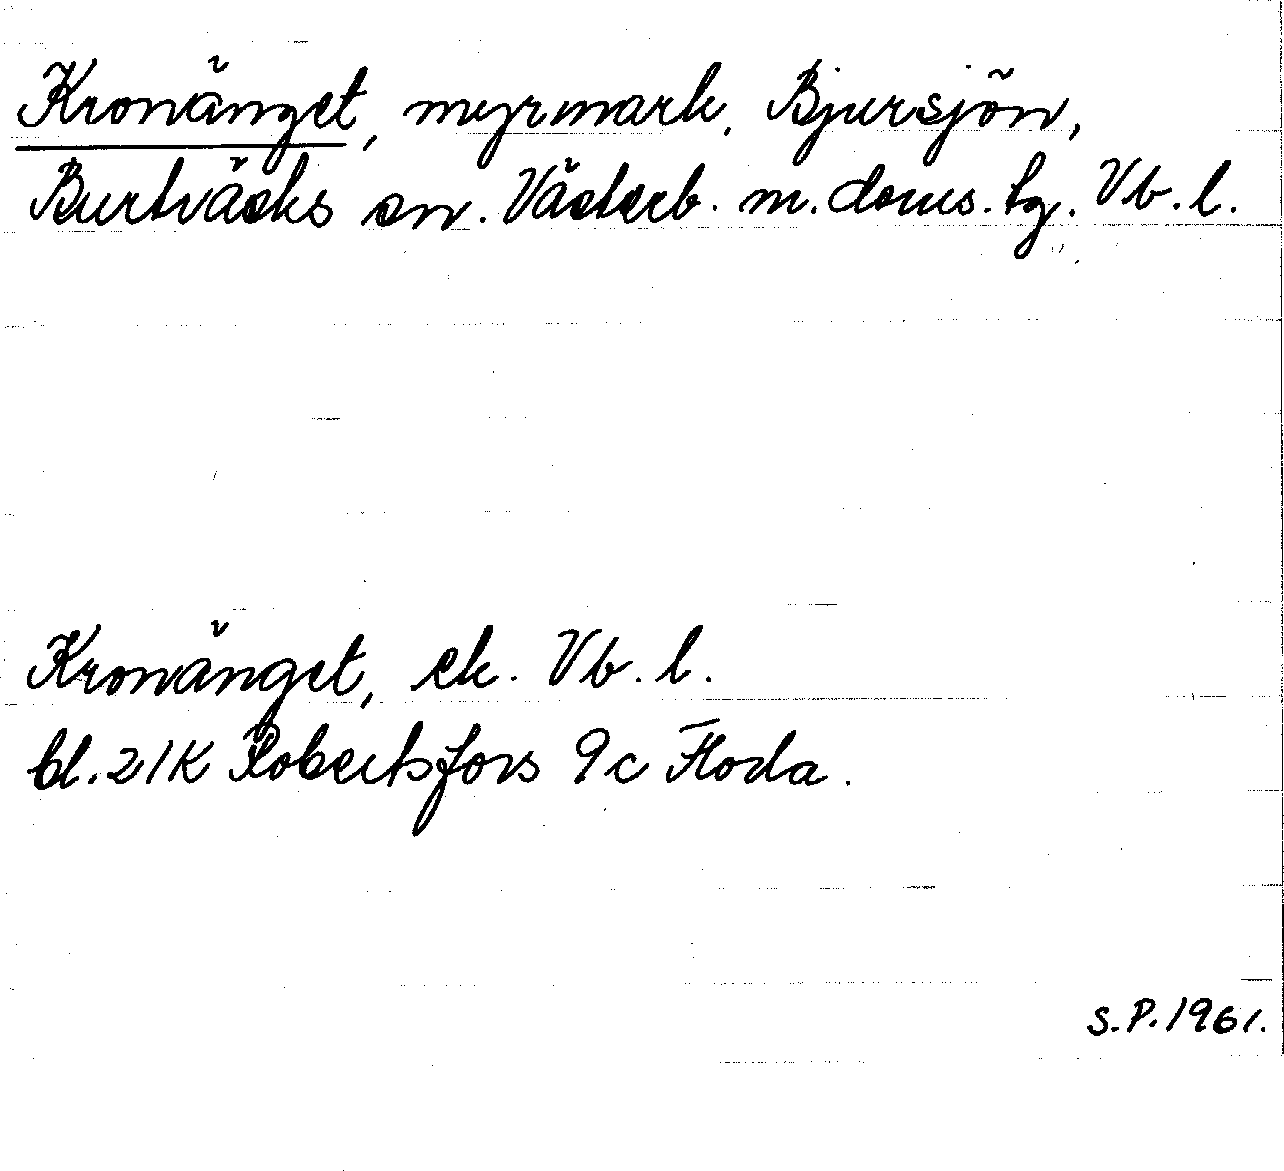 Kronänget, myrmark, Bjursjön,
Burträsks sn. Västerb. m. doms. tg. Vb. l.
Kronänget, ek. Vb. l.
bl. 21K Robertsfors 9c Floda.
S.P. 1961.